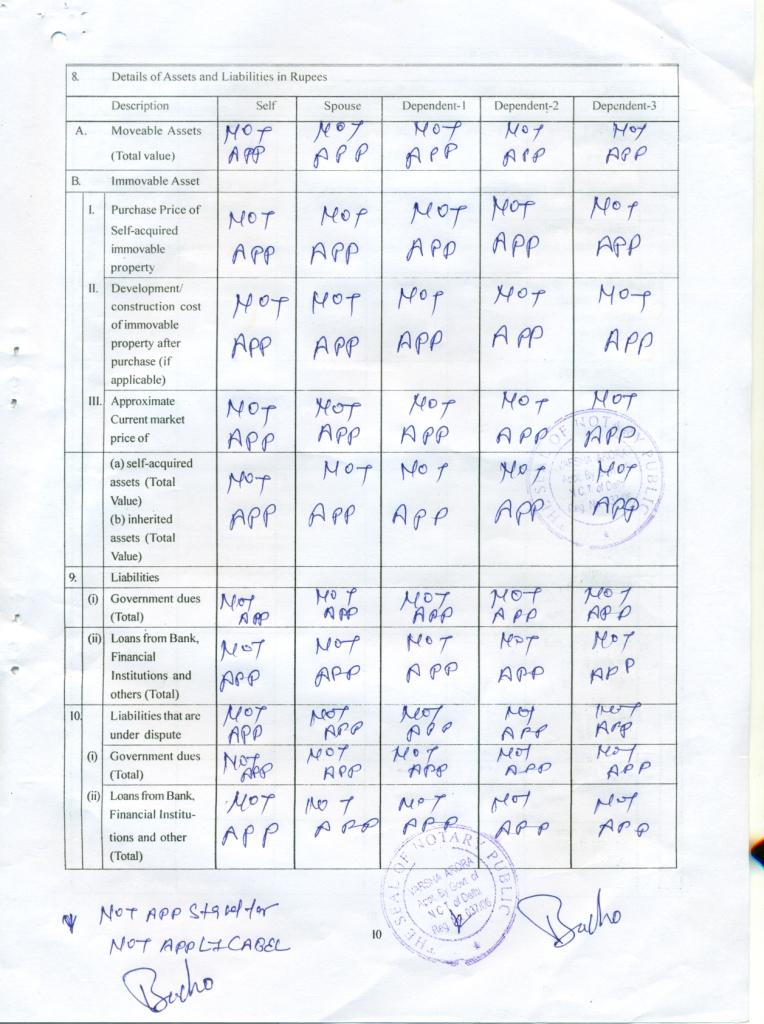 8. Details of Assets and Liabilities in Rupees
Description Self Spouse Dependent-1 Dependent-2 Dependent-3
A. Moveable Assets NOT NOT NOT NOT NOT
(Total value) APP APP APP APP APP
B. Immovable Asset
I. Purchase Price of NOT NOT NOT NOT NOT
Self-acquired
immovable APP APP APP APP APP
property
II. Development/
construction cost NOT NOT NOT NOT NOT
of immovable
property after APP APP APP APP APP
purchase (if
applicable)
III. Approximate NOT NOT NOT NOT NOT
Current market
price of APP APP APP APP APP
(a) self-acquired
assets (Total NOT NOT NOT NOT NOT
Value)
(b) inherited APP APP APP APP APP
assets (Total
Value)
9. Liabilities
(i) Government dues NOT NOT NOT NOT NOT
(Total) APP APP APP APP APP
(ii) Loans from Bank, NOT NOT NOT NOT NOT
Financial
Institutions and APP APP APP APP APP
others (Total)
10. Liabilities that are NOT NOT NOT NOT NOT
under dispute APP APP APP APP APP
(i) Government dues NOT NOT NOT NOT NOT
(Total) APP APP APP APP APP
(ii) Loans from Bank, NOT NOT NOT NOT NOT
Financial Institu-
tions and other APP APP APP APP APP
(Total)
THE SEAL OF NOTARY PUBLIC
VARSHA ARORA
Appt. By Govt. of
N.C.T. of Delhi
THE SEAL OF NOTARY PUBLIC
NOT APP Stand for
NOT APPLICABEL
10